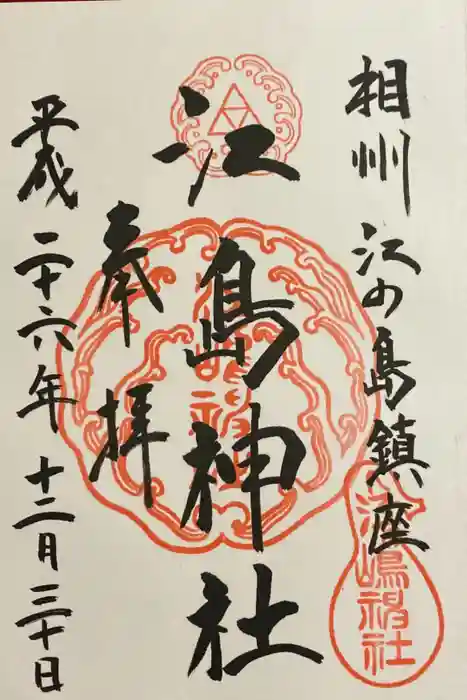 相州 江の島鎮座
江島神社
奉拝
平成二十六年十二月三十日
江嶋神社